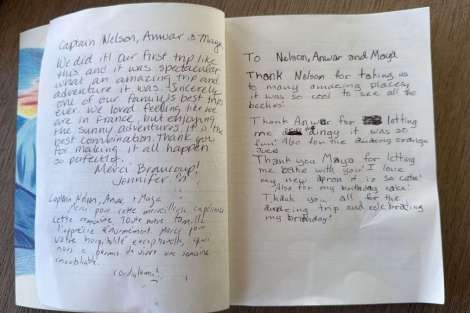 Captain Nelson, Anwar & Maya
We did it! Our first trip like
this and it was spectacular
what an amazing trip and
adventure it was. Sincerely
one of our family's best trips
ever. We loved feeling like we
are in France, but enjoying
the sunny adventures, it is the
best combination. Thank you
for making it all happen
so perfectly!
Merci Beaucoup!
Jennifer
Captain Nelson, Anwar + Maya
Merci pour cette merveilleuse expérience
Cette semaine Toute notre famille
l'apprécie énormément. Merci pour
votre hospitalité exceptionnelle, qui
nous a permis de vivre une semaine
inoubliable.
Cordialement
To Nelson, Anwar and Maya
Thank Nelson for taking us
to many amazing places,
it was so cool to see all the
beaches!
Thank Anwar for letting
me it was so
fun! Also for the orange
juice
Thank you Maya for letting
me bake with you! I love
my new apron it is so cute!
Also for my birthday cake!
Thank you all for the
amazing trip and celebrating
my birthday!